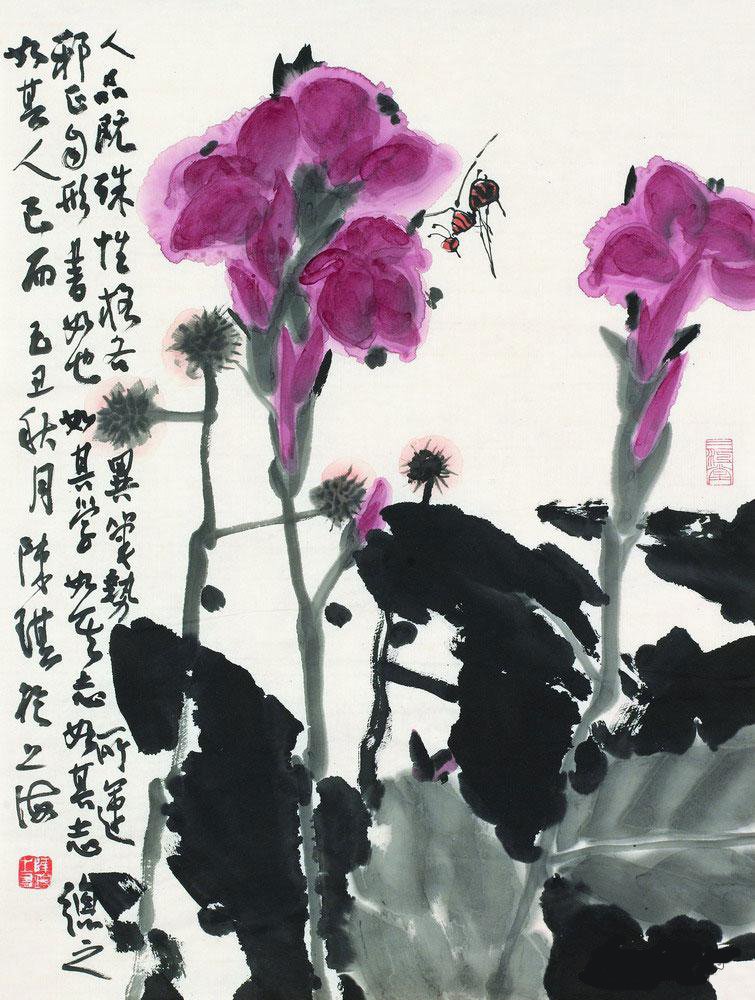 人品既殊性格各異筆勢所運
邪正自形書如也如其學如其志如其志總之
如其人已而己丑秋月陳琪於上海